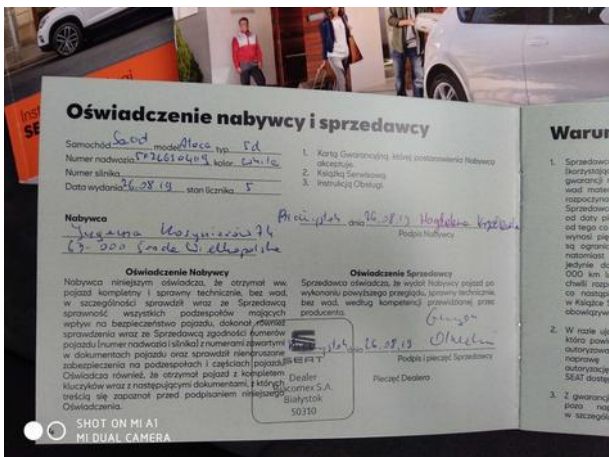 Oświadczenie nabywcy i sprzedawcy
Samochód Seat model Ateca typ 5d
Numer nadwozia kolor white
Numer silnika
Data wydania 26.08.19 stan licznika 5
1. Kartą Gwarancyjną, której postanowienia Nabywca akceptuje.
2. Książką Serwisową.
3. Instrukcją Obsługi.
Nabywca
Kosynierów 74
63-000 Środa Wielkopolska
Białystok dnia 26.08.19 Magdalena
Podpis Nabywcy
Oświadczenie Nabywcy
Nabywca niniejszym oświadcza, że otrzymał ww.
pojazd kompletny i sprawny technicznie, bez wad,
w szczególności sprawdził wraz ze Sprzedawcą
sprawność wszystkich podzespołów mających
wpływ na bezpieczeństwo pojazdu, dokonał również
sprawdzenia wraz ze Sprzedawcą zgodności numerów
pojazdu (numer nadwozia i silnika) z numerami zawartymi
w dokumentach pojazdu oraz sprawdził nienaruszone
zabezpieczenia na podzespołach i częściach pojazdu.
Oświadcza również, że otrzymał pojazd z kompletem
kluczyków wraz z następującymi dokumentami, z których
treścią się zapoznał przed podpisaniem niniejszego
Oświadczenia.
Oświadczenie Sprzedawcy
Sprzedawca oświadcza, że wydał Nabywcy pojazd po
wykonaniu powyższego przeglądu, sprawny technicznie,
bez wad, według kompetencji przewidzianej przez
producenta.
dnia 26.08.19
Podpis i pieczęć Sprzedawcy
SEAT
Dealer
Białystok
50310
Pieczęć Dealera
Warun
1. Sprzedawca
(korzystając
gwarancji
wad mate
rozpoczyna
Sprzedawc
od daty
od tego co
wynosi pię
są ogranic
natomiast
jedynie do
000 km
chwili rozp
co nastąp
w Książce
obowiązyw
2. W razie
która powi
autoryzowa
naprawę
autoryzacje
SEAT dostę
3. Z gwarancj
poza nap
w szczegól
SHOT ON MI A1
MI DUAL CAMERA